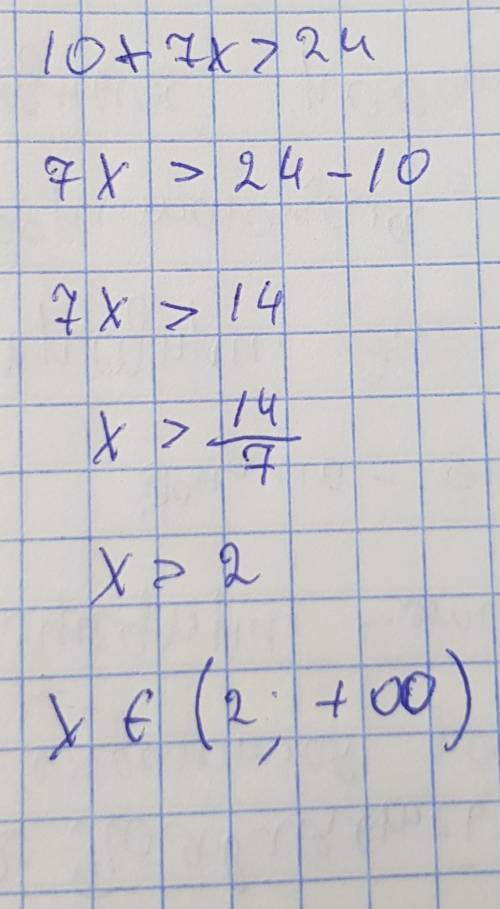 10+7x>24
7x > 24-10
7x > 14
x > 14/7
x > 2
x ∈ (2; +∞)